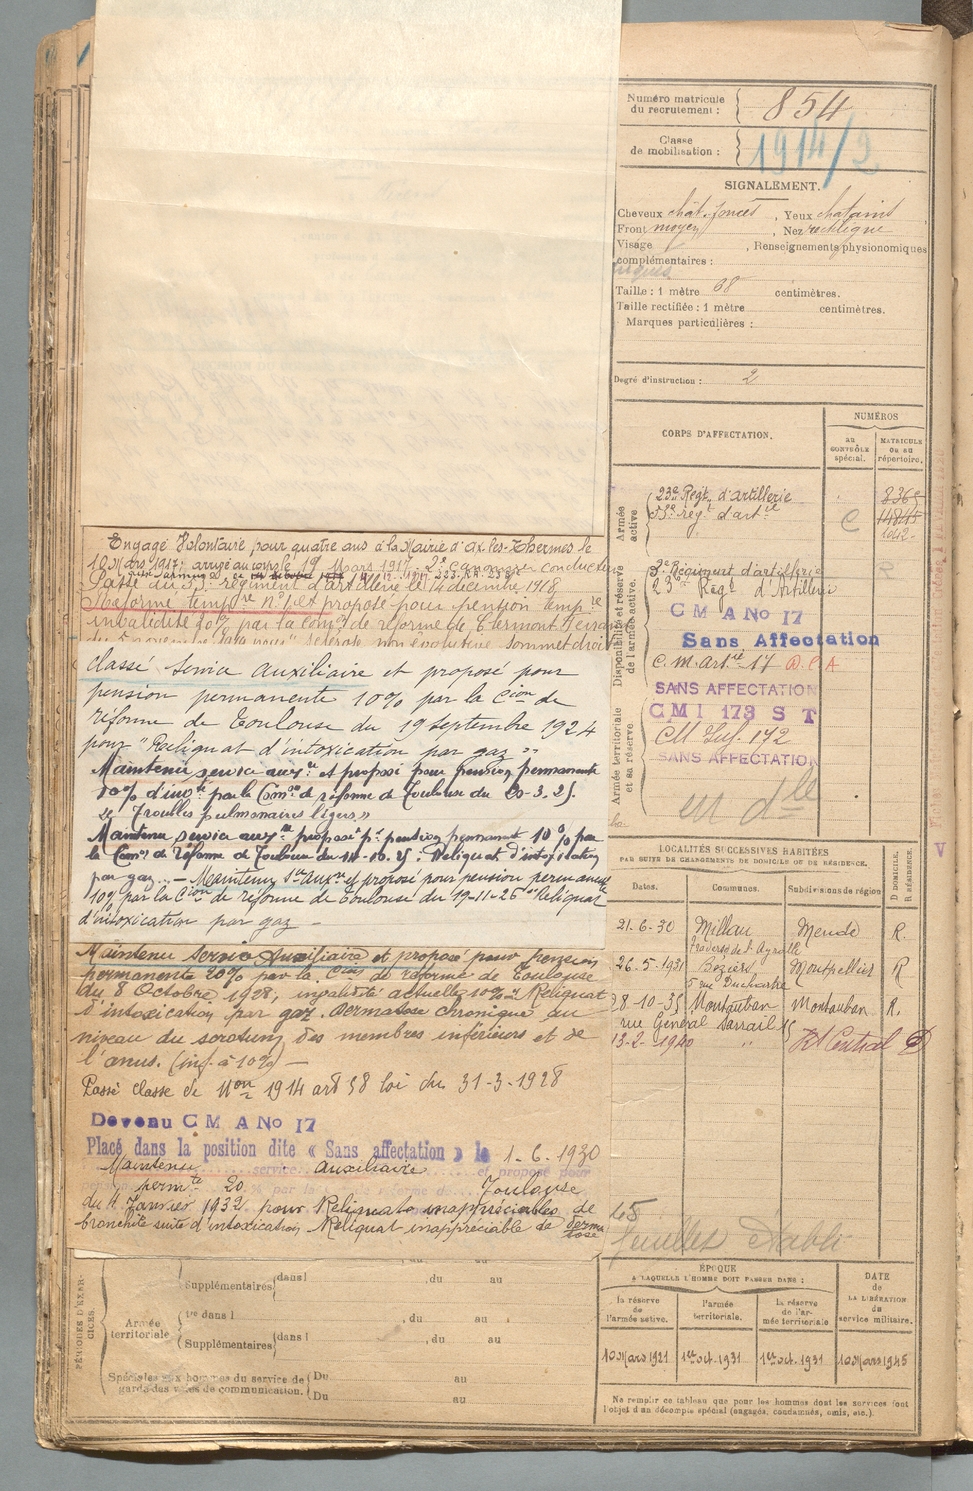 Numéro matricule
du recrutement : 854
Classe
de mobilisation : 1914/2
SIGNALEMENT.
Cheveux chât. foncés, Yeux chatains
Front moyen, Nez rectiligne
Visage , Renseignements physionomiques
complémentaires :
Taille : 1 mètre 68 centimètres.
Taille rectifiée : 1 mètre centimètres.
Marques particulières :
Degré d'instruction : 2
CORPS D'AFFECTATION.
NUMÉROS
au
CONTRÔLE
spécial.
MATRICULE
ou au
répertoire.
Armée
active
23e Régt. d'artillerie
53e régt d'artie
C
Disponibilité et réserve
de l'armée active.
23e Régt d'Artillerie
C M A No 17
Sans Affectation
C. m. Artie 17 D.C.A
SANS AFFECTATION
Armée territoriale
et sa réserve.
CMI 173 S T
CM Inf. 172
SANS AFFECTATION
LOCALITÉS SUCCESSIVES HABITÉES
PAR SUITE DE CHANGEMENTS DE DOMICILE OU DE RÉSIDENCE.
Dates.
Communes.
Subdivisions de région
D DOMICILE.
R RÉSIDENCE.
21-6-30 Millau Mende R.
Traverse de l'Ayrolle
26-5-1931 Béziers Montpellier R
5 rue Duchartre
8-10-35 Montauban Montauban R.
rue Général Sarrail
13-2-1940 " Rt Central D
Engagé Volontaire pour quatre ans à la Mairie d'Ax-les-Thermes le
10 Mars 1917; arrivé au corps le 19 Mars 1917. 2e canonnier conducteur
Passé au 53e régiment d'artillerie le 14 décembre 1918
Réformé tempre no 1 et proposé pour pension tempre
invalidité 10% par la Comon de réforme de Clermont Ferrand
classé service auxiliaire et proposé pour
pension permanente 10% par la Cion de
réforme de Toulouse du 19 septembre 1924
pour "Reliquat d'intoxication par gaz"
Maintenu service auxre et proposé pour pension permanente
10% d'invté par la Comon de réforme de Toulouse du 20-3-25.
"Troubles pulmonaires légers"
Maintenu service auxre proposé pr pension permanent 10% par
la Comon de réforme de Toulouse du 14-10-25 : Reliquat d'intoxication
par gaz. — Maintenu sce auxre et proposé pour pension permanente
10% par la Cion de réforme de Toulouse du 19-11-26 "Reliquat
d'intoxication par gaz —
Maintenu Service Auxiliaire et proposé pour pension
permanente 20% par la Cion de réforme de Toulouse
du 8 Octobre 1928, invalidité actuelle 10% Reliquat
d'intoxication par gaz. Dermatose chronique au
niveau du scrotum, des membres inférieurs et de
l'anus. (inf. à 10%) —
Passé classe de Mon 1914 art 58 loi du 31-3-1928
Devenu C M A No 17
Placé dans la position dite « Sans affectation » le 1-6-1930
Maintenu service auxiliaire et proposé pour
permte 20 % par la Toulouse
du 4 Janvier 1932 pour Reliquats inappréciables de
bronchite suite d'intoxication, Reliquat inappréciable de derma
tose
feuillet établi
PÉRIODES D'EXER-
CICES.
Supplémentaires dans l , du au
Armée
territoriale
ve dans l , du au
Supplémentaires dans l , du au
Spéciales aux hommes du service de
garde des voies de communication. Du au
Du au
ÉPOQUE
A LAQUELLE L'HOMME DOIT PASSER DANS :
DATE
de
LA LIBÉRATION
du
service militaire.
la réserve
de
l'armée active.
l'armée
territoriale.
la réserve
de l'ar-
mée territoriale
10 Mars 1921 1er oct. 1931 1er oct. 1931 10 Mars 1945
Ne remplir ce tableau que pour les hommes dont les services font
l'objet d'un décompte spécial (engagés, condamnés, omis, etc.).